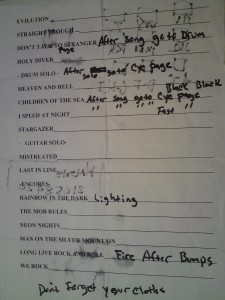 EVILUTION
STRAIGHT THROUGH
DON'T TALK TO STRANGER After Song go to Drum
Page
HOLY DIVER
- DRUM SOLO - After solo go to Cye page
HEAVEN AND HELL Black Black
CHILDREN OF THE SEA After song goto Cye page
I SPEED AT NIGHT " " " " Fast
STARGAZER
- GUITAR SOLO-
MISTREATED
LAST IN LINE
-ENCORES-
RAINBOW IN THE DARK Lighting
THE MOB RULES
NEON NIGHTS
MAN ON THE SILVER MOUNTAIN
LONG LIVE ROCK AND ROLL Fire After Bumps
WE ROCK
Don't Forget your Cloths